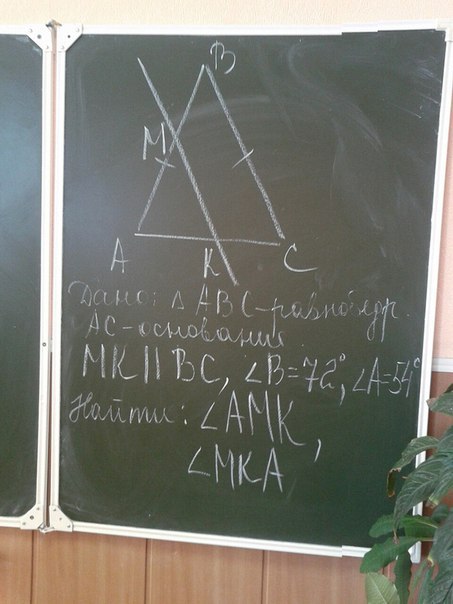 B
M
A K C
Дано: △ ABC-равнобедр.
AC-основание.
MK || BC, ∠B=72°, ∠A=54°
Найти: ∠AMK,
∠MKA